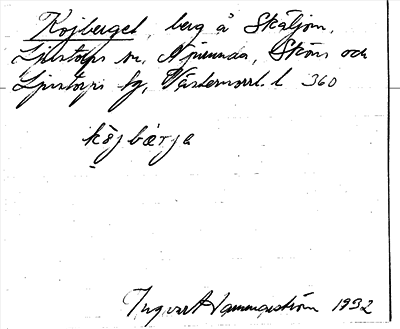 Kojberget, berg å Skäljom,
Ljustorps sn, Njurunda, Sköns och
Ljustorps tg, Västernorrl. l. 360
kŏj bærje
Ingvar Hammarström 1932